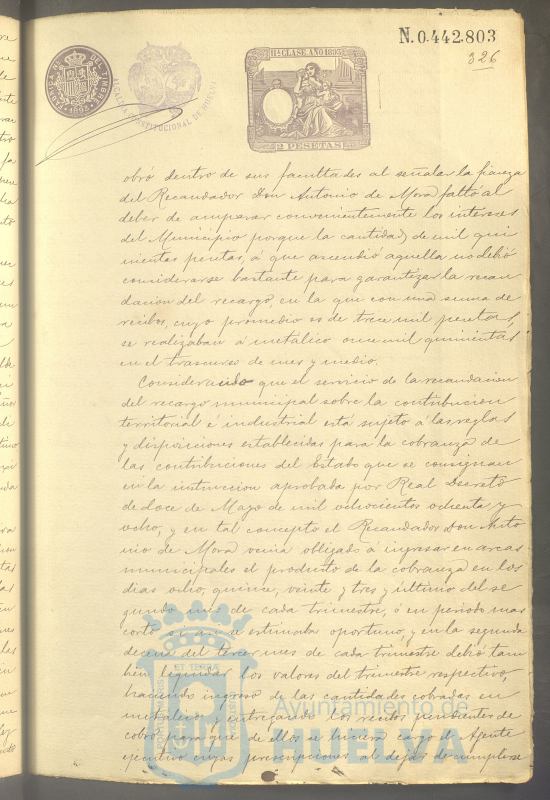 N.0.442.803
326
TIMBRE DEL
1893
ALCALDIA CONSTITUCIONAL DE HUELVA
11ª CLASE AÑO 1893
2 PESETAS
obró dentro de sus facultades al señalar la fianza
del Recaudador Don Antonio de Mora faltó al
deber de amparar convenientemente los intereses
del Municipio porque la cantidad de mil qui
nientas pesetas, á que ascendió aquella no debió
considerarse bastante para garantizar la recau
dacion del recargo, en la que con una suma de
recibos, cuyo promedio es de trece mil pesetas,
se realizaban á metálico once mil quinientas
en el trascurso de mes y medio.
Considerando que el servicio de la recaudacion
del recargo municipal sobre la contribucion
territorial é industrial está sujeto á las reglas
y disposiciones establecidas para la cobranza de
las contribuciones del Estado que se consignan
en la instruccion aprobada por Real Decreto
de doce de Mayo de mil ochocientos ochenta y
ocho, y en tal concepto el Recaudador Don Anto
nio de Mora venia obligado á ingresar en arcas
municipales el producto de la cobranza en los
dias ocho, quince, veinte y tres y último del se
gundo mes de cada trimestre, ó en periodo mas
corto si asi se estimaba oportuno, y en la segunda
decena del tercer mes de cada trimestre debió tam
bien liquidar los valores del trimestre respectivo,
haciendo ingreso de las cantidades cobradas en
metalico y entregando los recibos pendientes de
cobro para que de ellos se hiciera cargo el Agente
ejecutivo cuyas prescripciones al dejar de cumplirse
Ayuntamiento de
HUELVA